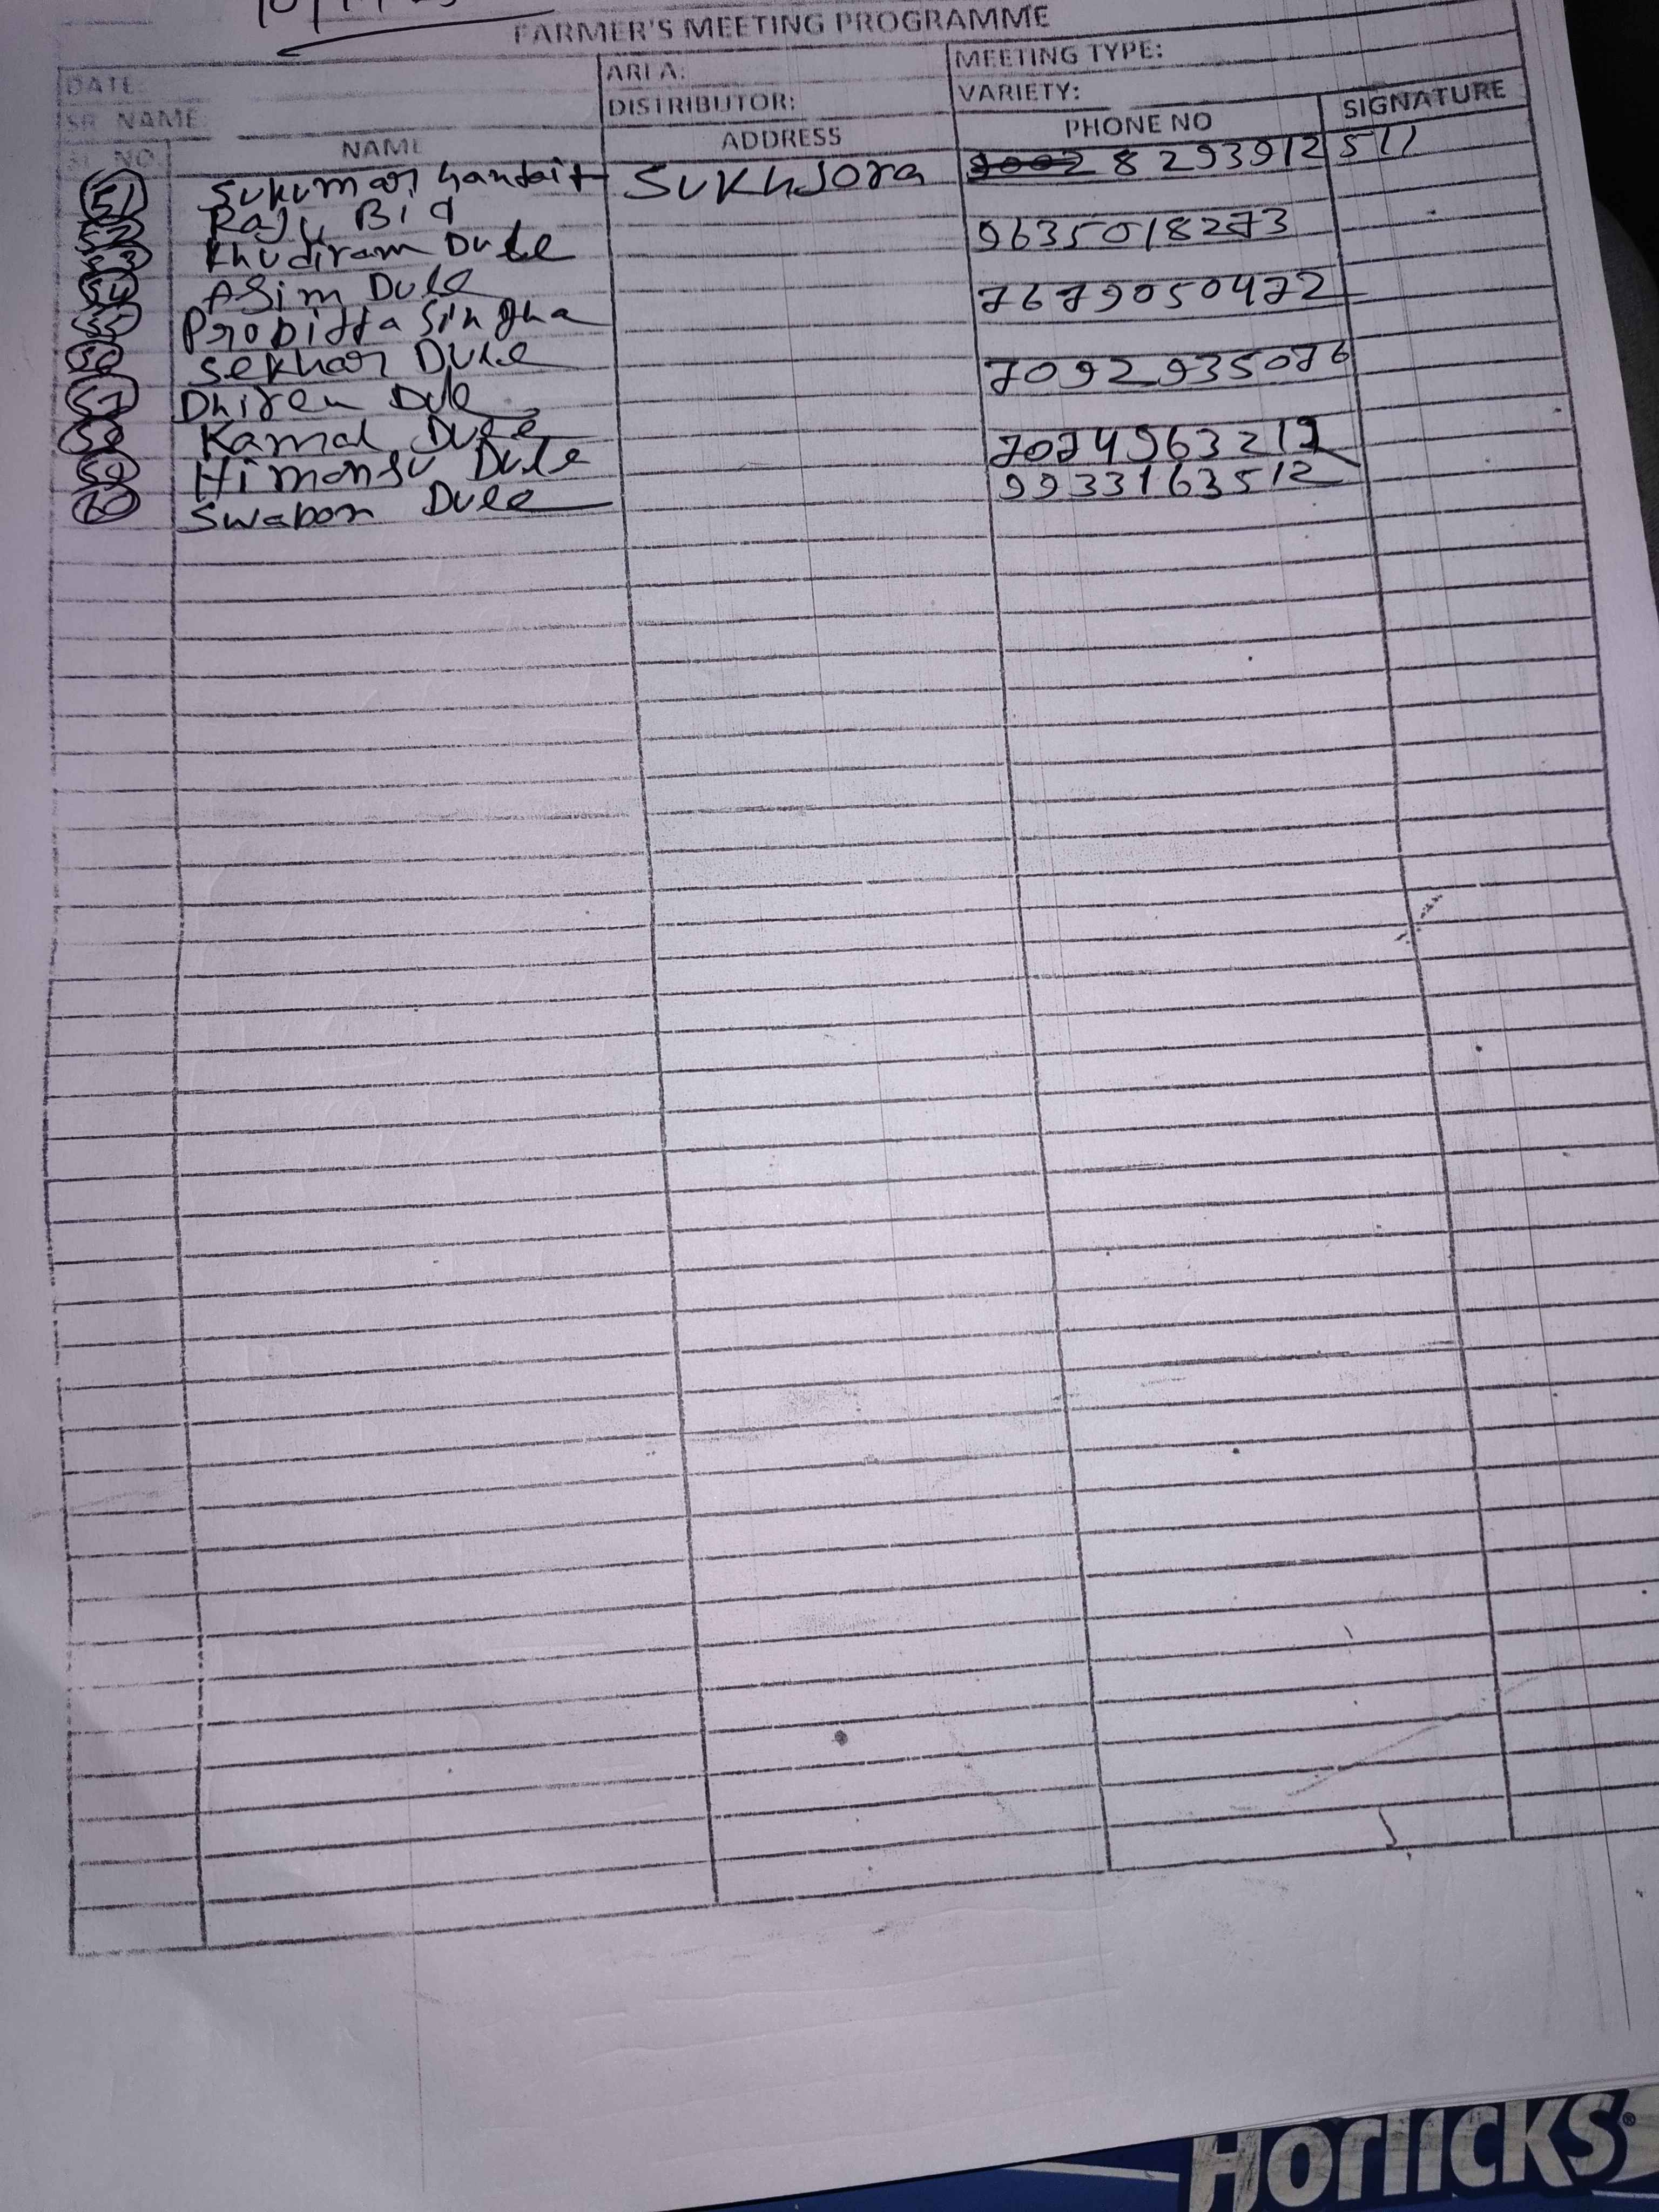 FARMER'S MEETING PROGRAMME
DATE: AREA: MEETING TYPE:
SR. NAME: DISTRIBUTOR: VARIETY:
SL. NO. NAME ADDRESS PHONE NO SIGNATURE
51 Sukumar handait Sukhjora 8293912511
52 Raju Bid
53 Khudiram Dule 9635018273
54 Asim Dule
55 Singha 7679050472
56 Sekhar Dule
57 Dhiren Dule 7092935076
58 Kamal Dule
59 Himansu Dule 7074963219
60 Swapan Dule 9933163512
Horlicks